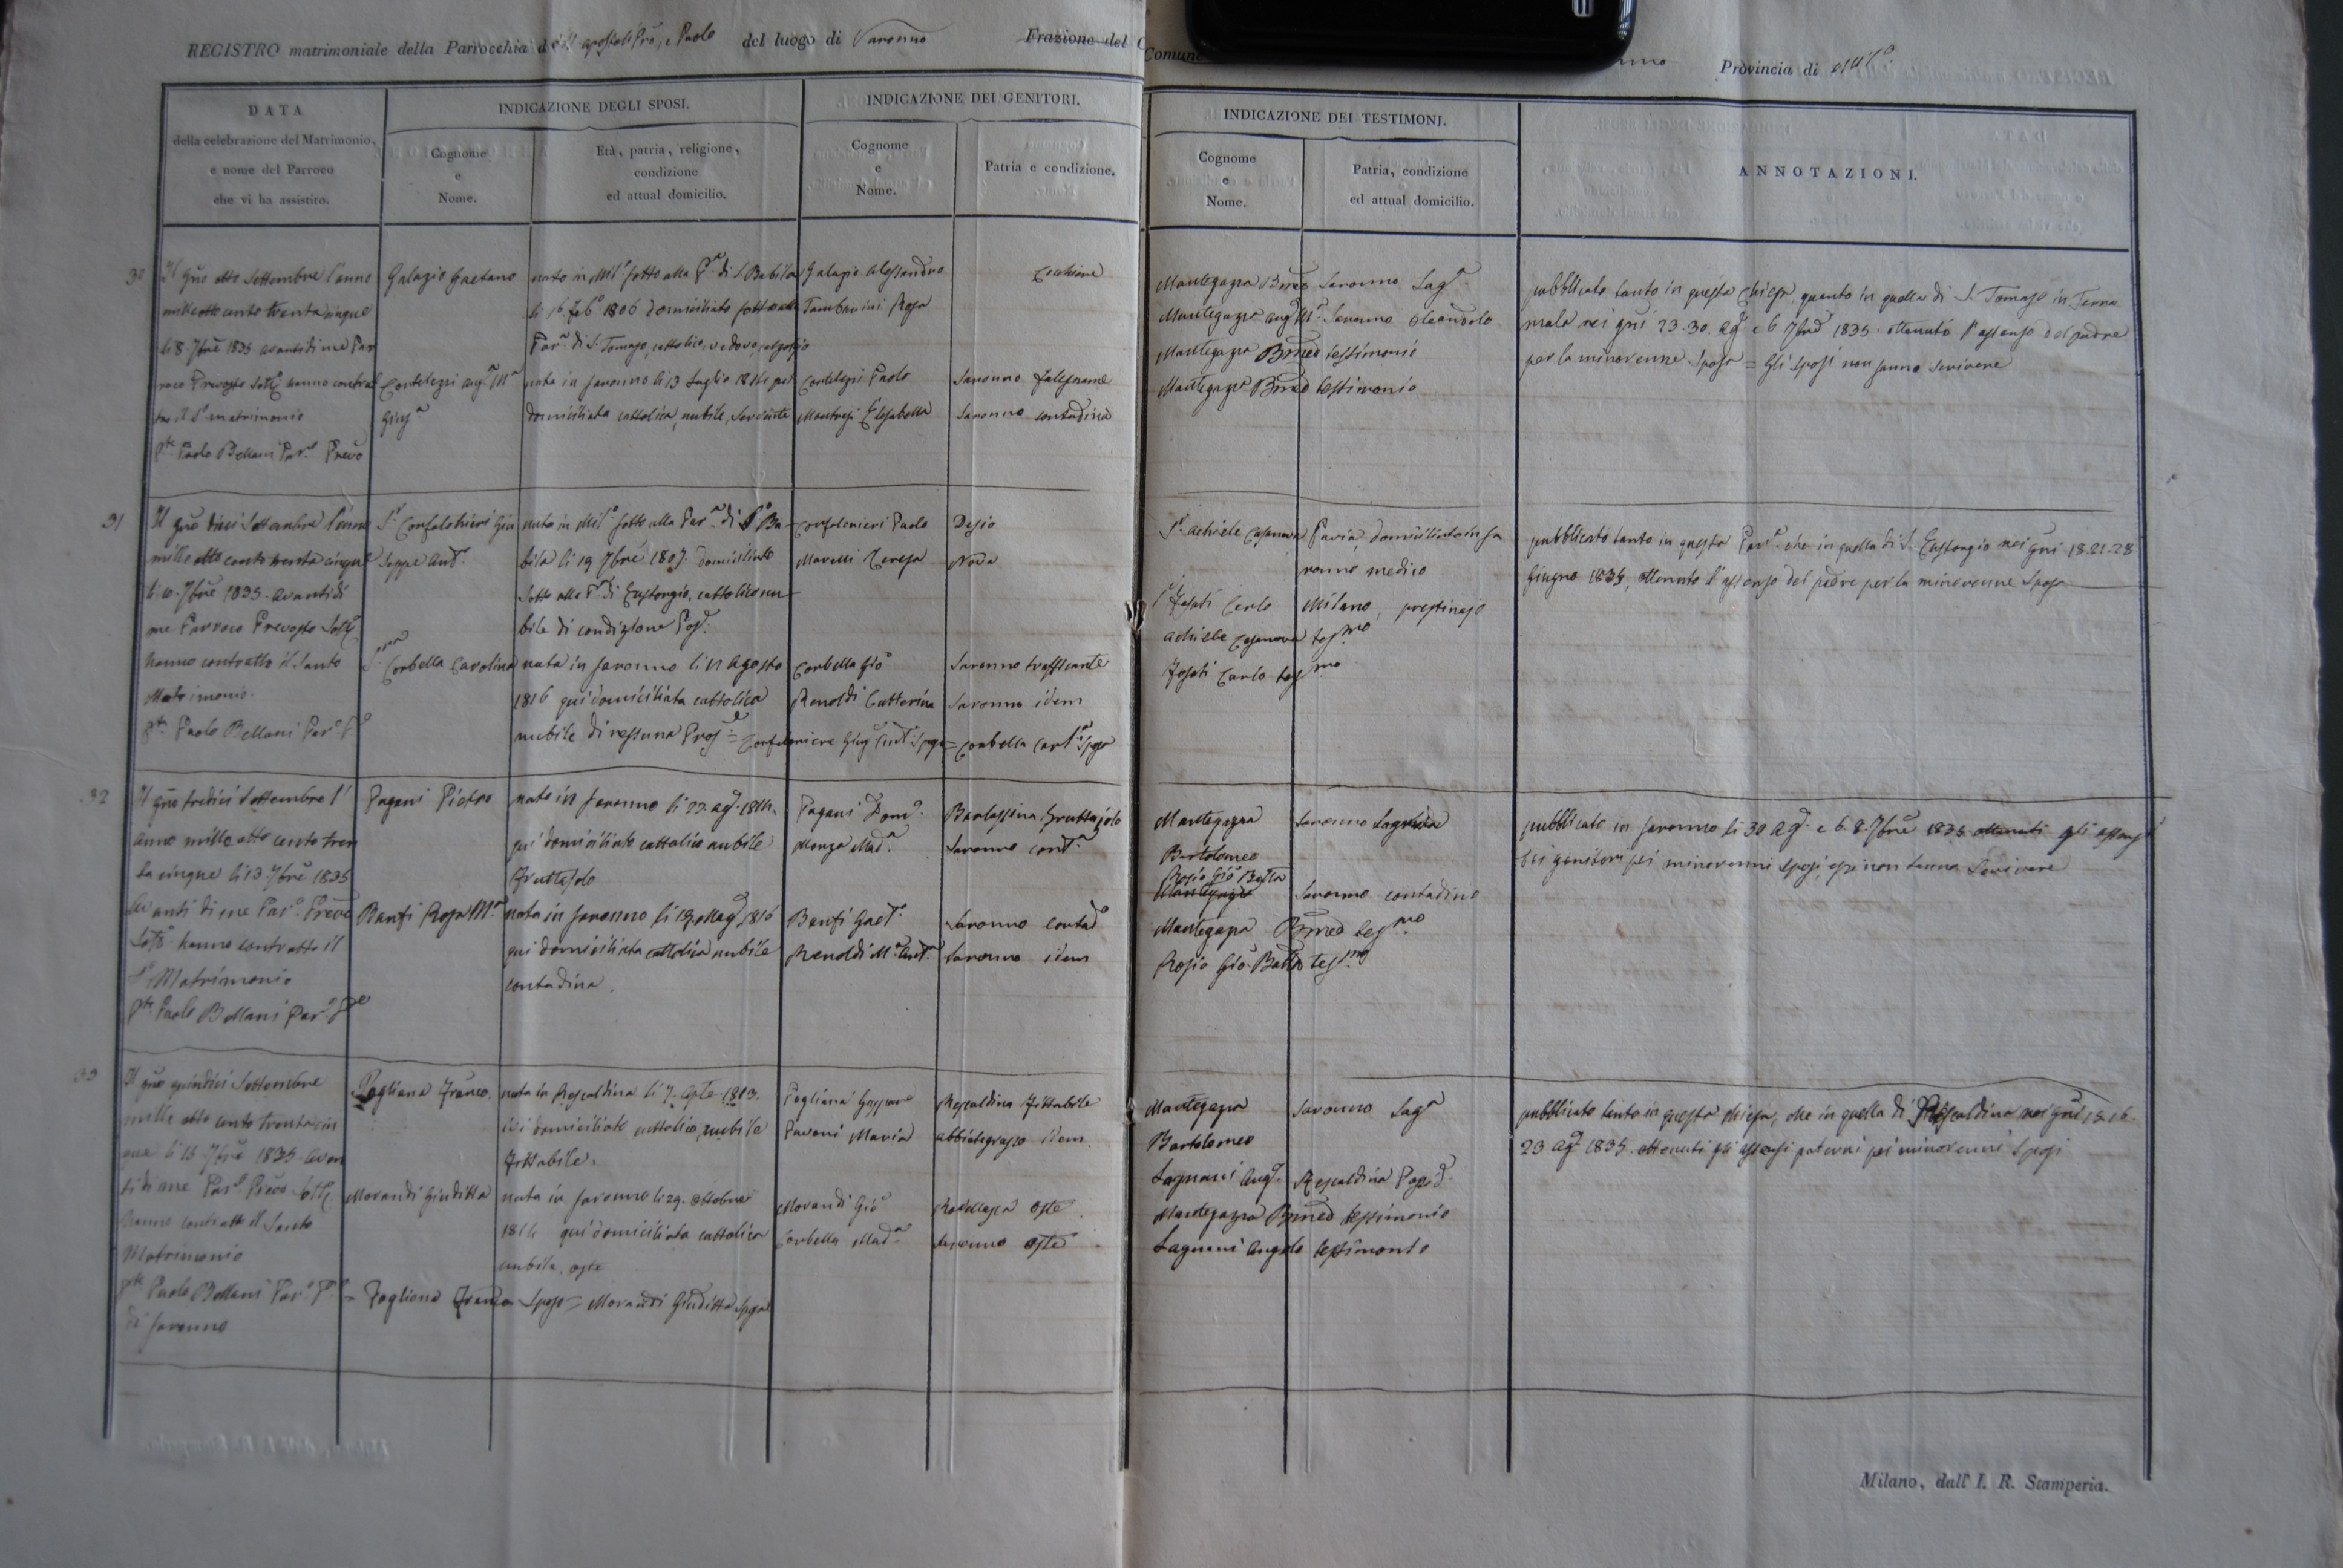 REGISTRO matrimoniale della Parrocchia de SS. apostoli Pro, e Paolo del luogo di Saronno Frazione del Comune
Provincia di Mil.o
DATA
della celebrazione del Matrimonio,
e nome del Parroco
che vi ha assistito.
INDICAZIONE DEGLI SPOSI.
Cognome
e
Nome.
Età, patria, religione,
condizione
ed attual domicilio.
INDICAZIONE DEI GENITORI.
Cognome
e
Nome.
Patria e condizione.
INDICAZIONE DEI TESTIMONJ.
Cognome
e
Nome.
Patria, condizione
ed attual domicilio.
ANNOTAZIONI.
30
Il gno otto Settembre l'anno
mille otto cento trenta cinque
li 8 7bre 1835 avanti di me Par
roco Prevosto hanno contrat
to il S. matrimonio
Pte Paolo Bellani Par.o Prevo
Galazio Gaetano
nato in Mil.o sotto alla P.a di S. Babila
li 16 feb.o 1806 domiciliato sotto alla
Par.a di S. Tomaso, cattolico, vedovo,
Galazio Alessandro
Tamburini Rosa
Cocchiere
Giuse.a
nata in Saronno li 13 Luglio 1814 qui
domiciliata cattolica, nubile, Servente
Paolo
Elisabetta
Saronno falegname
Saronno contadina
Mantegazza Brmeo Saronno Sag.a
Mantegazza Ang. M.a Saronno
Mantegazza Brmeo testimonio
Mantegazza Brmeo testimonio
pubblicato tanto in questa Chiesa, quanto in quella di S. Tomaso in Terra
mala nei gni 23. 30. ag.o e 6. 7bre 1835. ottenuto l'assenso del padre
per la minorenne Sposa = Gli Sposi non sanno scrivere
31
Il gno dieci Settembre l'anno
mille otto cento trenta cinque
li 10. 7bre 1835. avanti di
me Parroco Prevosto
hanno contratto il Santo
Matrimonio.
Pte Paolo Bellani Par.o P.o
S.r Confalonieri Giu
seppe Ant.
nato in Mil.o sotto alla Par.a di S.a Ba
bila li 19 7bre 1807. domiciliato
sotto alla P.a di Eustorgio, cattolico nu
bile di condizione Pos.
Confalonieri Paolo
Mavelli Teresa
Desio
Nova
S.ra Corbella Carolina
nata in Saronno li 11 Agosto
1816 qui domiciliata cattolica
nubile di nessuna Prof.e = Confaloniere Giusp Ant. Sposo = Corbella Car.a Sposa
Corbella Gio
Renoldi Catterina
Saronno trafficante
Saronno idem
S.r Achille Casanova Pavia, domiciliato in Sa
ronno medico
S.r Fossati Carlo Milano, prestinajo
Achille Casanova tesmo
Fossati Carlo tesmo
pubblicato tanto in questa Par.a che in quella di S. Eustorgio nei gni 18. 21. 28
Giugno 1835, ottenuto l'assenso del padre per la minorenne Sposa
32
Il gno tredici Settembre l'
anno mille otto cento tren
ta cinque li 13. 7bre 1835
avanti di me Par.o Prevo
hanno contratto il
S. Matrimonio
Pte Paolo Bellani Par.o P.o
Pagani Pietro
nato in Saronno li 22. ag. 1814.
qui domiciliato cattolico nubile
Fruttajolo
Pagani Dom.o
Monza Mad.a
Barlassina Fruttajolo
Saronno cont.a
Banfi Rosa M.a
nata in Saronno li 19 Mag. 1816
qui domiciliata cattolica nubile
contadina.
Banfi Gaet.
Renoldi M.a Ant.
Saronno contad.o
Saronno idem
Mantegazza
Bartolomeo
Saronno Sagrista
Rosio Gio Batta
Saronno contadino
Mantegazza Brmeo tesmo
Rosio Gio. Batta tesmo
pubblicato in Saronno li 30 ag. e 6. 8. 7bre 1835. ottenuti gli assensi
dei genitori pei minorenni Sposi, essi non sanno Scrivere
33
Il gno quindici Settembre
mille otto cento trenta cin
que li 15 7bre 1835. avan
ti di me Par.o Prevo
hanno contratto il Santo
Matrimonio
Pte Paolo Bellani Par.o P.o = Pogliana Franco Sposo = Morandi Giuditta Sposa
di Saronno
Pogliana Franco
nato in Rescaldina li 7. Aple 1813.
ivi domiciliato cattolico, nubile
fittabile.
Pogliana Gaspare
Pavoni Maria
Rescaldina fittabile
Abbiategrasso idem.
Morandi Giuditta
nata in Saronno li 29. Ottobre
1814 qui domiciliata cattolica
nubile, oste
Morandi Gio
Corbella Mad.a
oste
Saronno oste
Mantegazza
Bartolomeo
Saronno Sag.a
Legnani Ang. Rescaldina
Mantegazza Brmeo testimonio
Legnani Angelo testimonio
pubblicato tanto in questa chiesa, che in quella di Rescaldina nei gni 15. 16.
23 ag. 1835. ottenuti gli assensi paterni pei minorenni Sposi
Milano, dall' I. R. Stamperia.